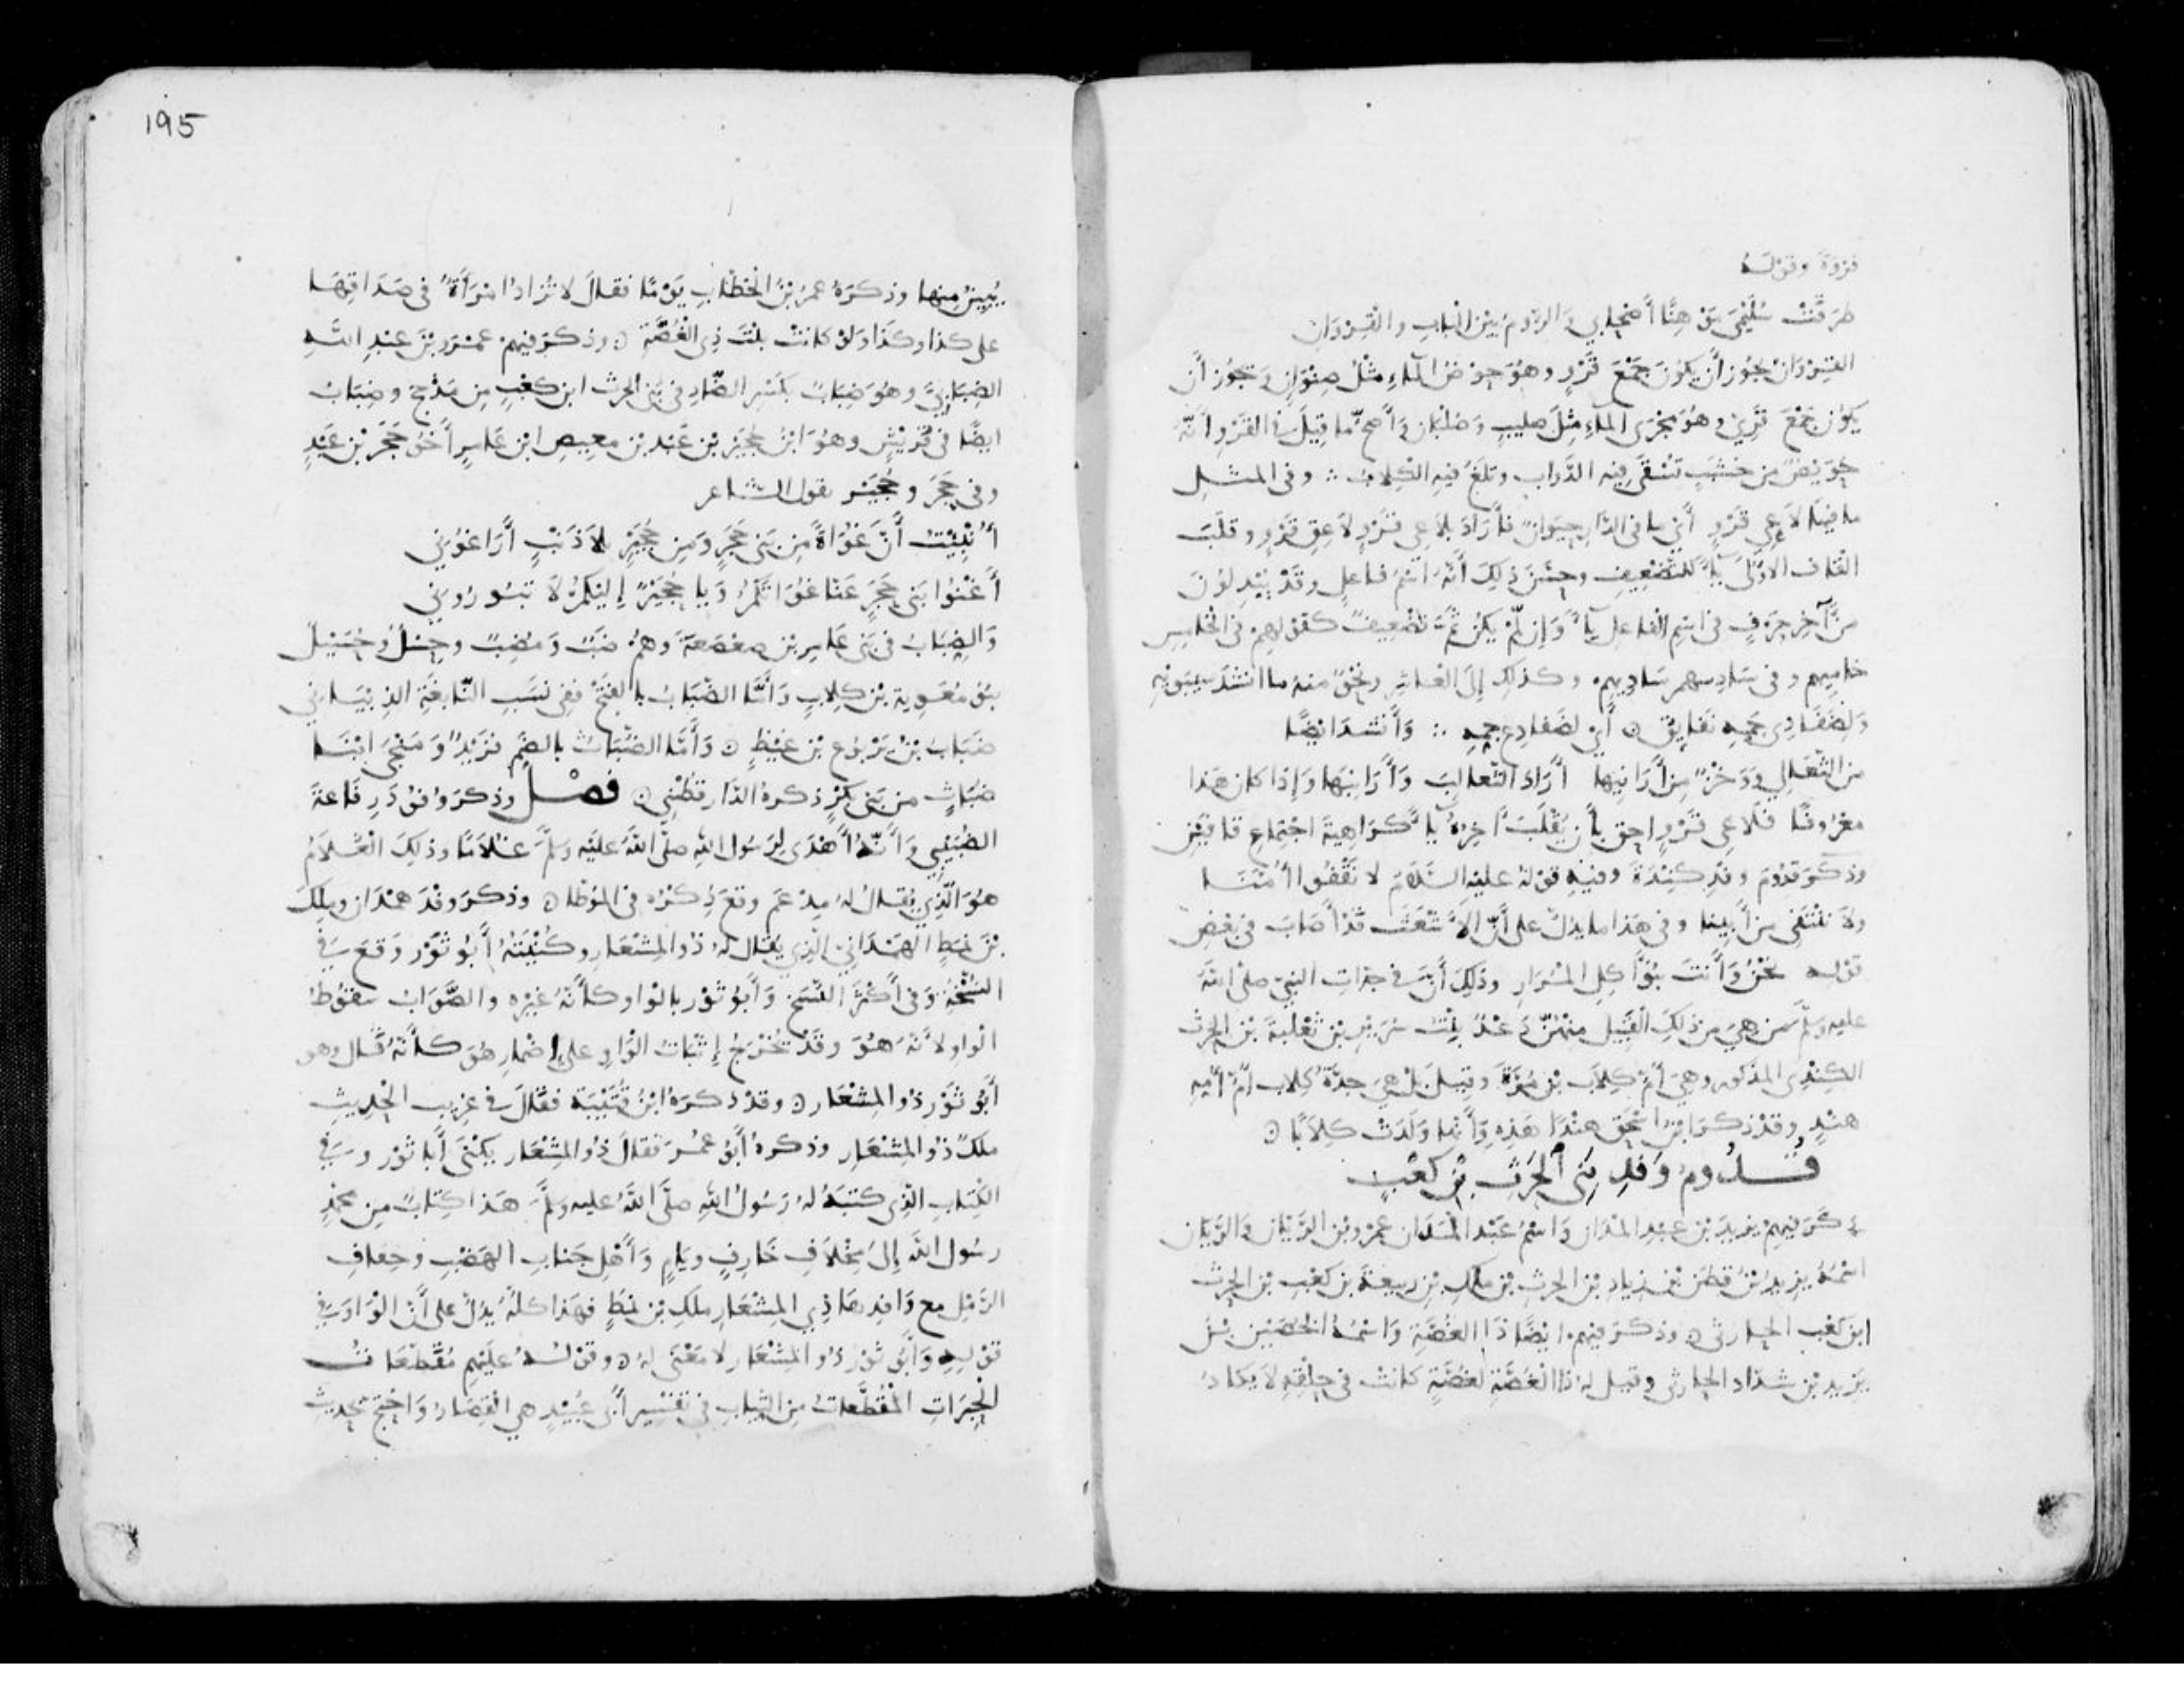 فروة وقوله
طرقت سليمى موهنا أصحابي والروم بين الباب والقروان
القروان يجوز أن يكون جمع قرو وهو حوض الماء مثل صنوان ويجوز أن
يكون جمع قري وهو مجرى الماء مثل صليب وصلبان وأصح ما قيل في القرو أنه
حويض من خشب تسقى فيه الدواب وتلغ فيه الكلاب ∴ وفي المثل
ما فيها لاعي قرو أي ما في الدار حيوان فأراد بلاعي قرو لاعق قرو وقلب
القاف الأولى يا للتضعيف وحسن ذلك أنه اسم فاعل وقد يبدلون
من آخر حرف في اسم الفاعل يا وإن لم يكن ثم تضعيف كقولهم في الخامس
خاميهم وفي سادسهم ساديهم وكذلك إلى العاشر ونحو منه ما أنشد سيبويه
ولضفادي جمه نقانق ٥ أي لضفادع جمه ∴ وأنشد ايضا
من الثعالي ووخز من أرانيها أراد الثعالب وأرانبها وإذا كان هذا
معروفا فلاعي قرو احق بأن يقلب آخره يا كراهية اجتماع قافين
وذكر قدوم وفد كندة وفيه قوله عليه السلام لا نقفوا أمنا
ولا ننتفي من أبينا وفي هذا ما يدل على أن الأشعث قد أصاب في بعض
قوله نحن وأنت بنو آكل المرار وذلك أن في جدات النبي صلى الله
عليه وسلم من هي من ذلك القبيل منهن دعد بنت سرير بن ثعلبة بن الحرث
الكندي المذكور وهي أم كلاب بن مرة وقيل بل هي جدة كلاب أم أمه
هند وقد ذكر ابن اسحق هندا هذه وأنها ولدت كلابا ٥
قدوم وفد بني الحرث بن كعب
ذكر فيهم يزيد بن عبد المدان واسم عبد المدان عمرو بن الديان والديان
اسمه يزيد بن قطن بن زياد بن الحرث بن ملك بن ربيعة بن كعب بن الحرث
ابن كعب الحارثي ٥ وذكر فيهم ايضا ذا الغصة واسمه الحصين بن
يزيد بن شداد الحارثي وقيل له ذا الغصة لغصة كانت في حلقه لا يكاد
195
يبين منها وذكره عمر بن الخطاب يوما فقال لا تزاد امرأة في صداقها
على كذا وكذا ولو كانت بنت ذي الغصة ٥ وذكر فيهم عمرو بن عبد الله
الضبابي وهو ضباب بكسر الضاد في بني الحرث ابن كعب من مذحج وضباب
ايضا في قريش وهو ابن حجير بن عبد بن معيص ابن عامر أخو حجر بن عبد
وفي حجر وحجير يقول الشاعر
أنبئت أن غواة من بني حجر ومن حجير بلا ذنب أراغوني
أغنوا بني حجر عنا غواتكم ويا حجير إليكم لا تبوروني
والضباب في بني عامر بن صعصعة وهم ضب ومضب وحسل وحسيل
بنو معوية بن كلاب وأما الضباب بالفتح ففي نسب النابغة الذبياني
ضباب بن يربوع بن غيظ ٥ وأما الضباث بالضم فزيد ومنجى ابنا
ضباث من بني بكر ذكره الدارقطني ٥ فصل وذكر وفود رفاعة
الضبيبي وأنه أهدى لرسول الله صلى الله عليه وسلم غلاما وذلك الغلام
هو الذي يقال له مدعم وقع ذكره في الموطا ٥ وذكر وفد همدان وملك
بن نمط الهمداني الذي يقال له ذو المشعار وكنيته أبو ثور وقع في
النسخة وفي أكثر النسخ وأبو ثور بالواو كأنه غيره والصواب سقوط
الواو لأنه هو وقد يخرج إثبات الواو على إضمار هو كأنه قال وهو
أبو ثور ذو المشعار ٥ وقد ذكره ابن قتيبة فقال في غريب الحديث
ملك ذو المشعار وذكره أبو عمر فقال ذو المشعار يكنى أبا ثور وفي
الكتاب الذي كتبه له رسول الله صلى الله عليه وسلم هذا كتاب من محمد
رسول الله إلى مخلاف خارف ويام وأهل جناب الهضب وحقاف
الرمل مع وافدها ذي المشعار ملك بن نمط فهذا كله يدل على أن الواو في
قوله وأبو ثور ذو المشعار لا معنى له ٥ وقوله عليهم مقطعات
الحبرات المقطعات من الثياب في تفسير أبي عبيد هي القصار واحتج بحديث